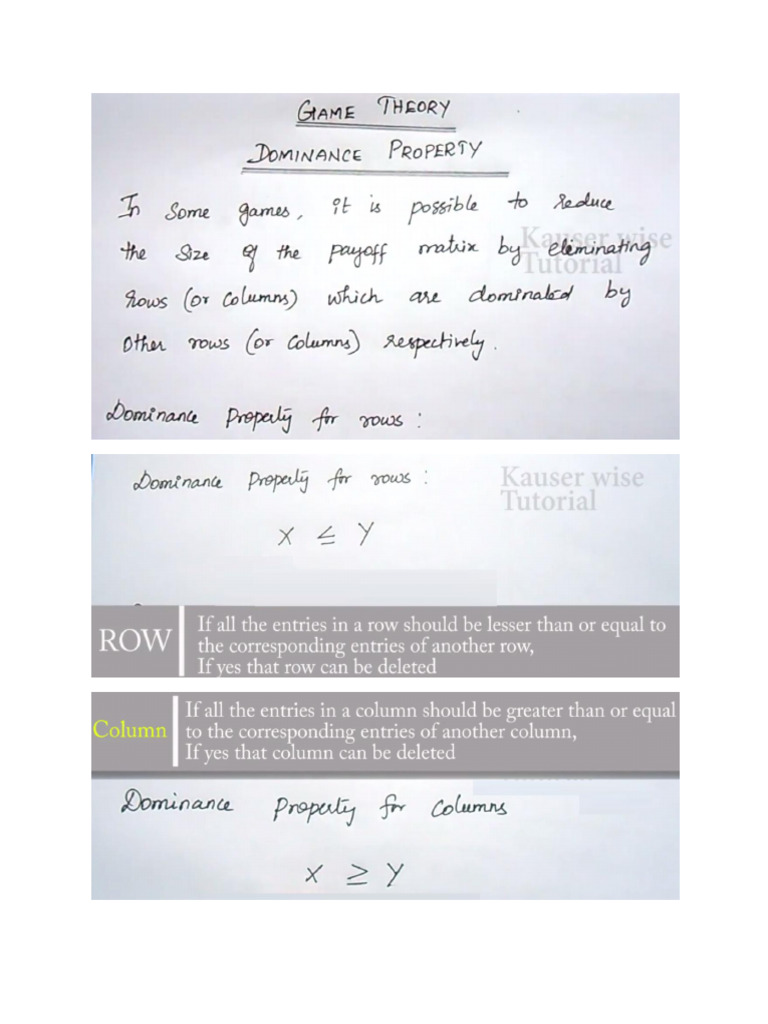 GAME THEORY
DOMINANCE PROPERTY
In some games, it is possible to reduce
Kauser wise
the size of the payoff matrix by eleminating
Tutorial
rows (or columns) which are dominated by
other rows (or columns) respectively.
Dominance Property for rows :
Dominance Property for rows :
Kauser wise
Tutorial
X ≤ Y
ROW
If all the entries in a row should be lesser than or equal to
the corresponding entries of another row,
If yes that row can be deleted
Column
If all the entries in a column should be greater than or equal
to the corresponding entries of another column,
If yes that column can be deleted
Dominance Property for Columns
X ≥ Y